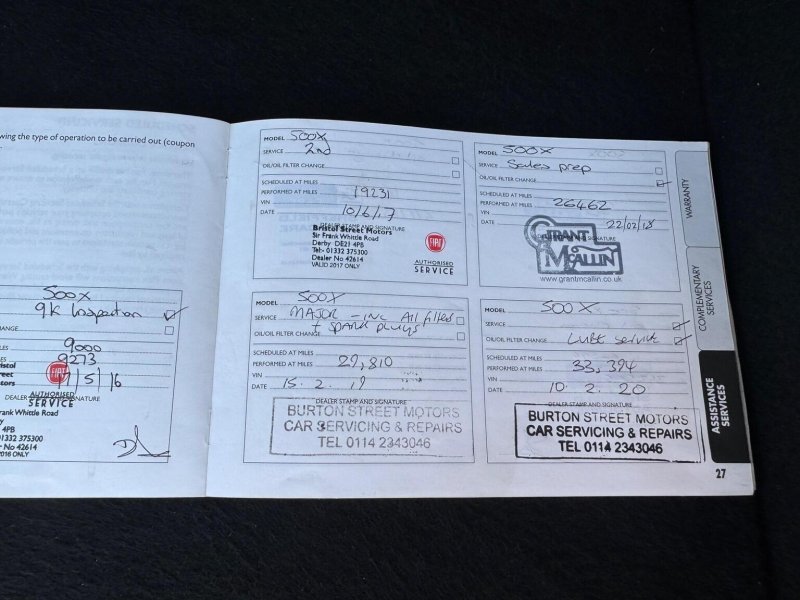 wing the type of operation to be carried out (coupon
500X
9k Inspection
ANGE
9000
9273
istol
reet
tors
FIAT
17/5/16
AUTHORISED
SERVICE
DEALER STAMP AND SIGNATURE
rank Whittle Road
4PB
01332 375300
r No 42614
2016 ONLY
MODEL 500X
SERVICE 2nd
OIL/OIL FILTER CHANGE
SCHEDULED AT MILES
PERFORMED AT MILES 19231
VIN
DATE 10/6/17
DEALER STAMP AND SIGNATURE
Bristol Street Motors
Sir Frank Whittle Road
Derby DE21 4PB
Tel:- 01332 375300
Dealer No 42614
VALID 2017 ONLY
FIAT
AUTHORISED
SERVICE
MODEL 500X
SERVICE Sales prep
OIL/OIL FILTER CHANGE
SCHEDULED AT MILES
PERFORMED AT MILES 26462
VIN
DATE 22/02/18
SIGNATURE
GRANT
McALLIN
www.grantmcallin.co.uk
MODEL 500X
SERVICE MAJOR - inc All filters
+ spark plugs
OIL/OIL FILTER CHANGE
SCHEDULED AT MILES
PERFORMED AT MILES 29,810
VIN
DATE 15.2.19
DEALER STAMP AND SIGNATURE
BURTON STREET MOTORS
CAR SERVICING & REPAIRS
TEL 0114 2343046
MODEL 500X
SERVICE
OIL/OIL FILTER CHANGE LUBE service
SCHEDULED AT MILES
PERFORMED AT MILES 33,394
VIN
DATE 10.2.20
DEALER STAMP AND SIGNATURE
BURTON STREET MOTORS
CAR SERVICING & REPAIRS
TEL 0114 2343046
WARRANTY
COMPLEMENTARY
SERVICES
ASSISTANCE
SERVICES
27